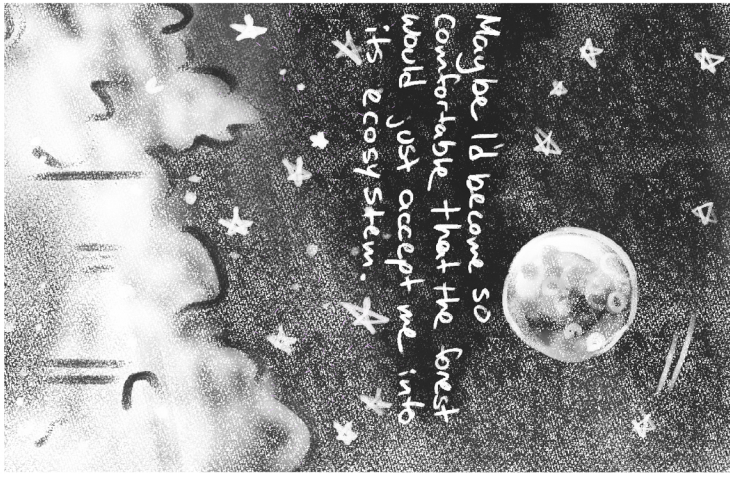 Maybe I'd become so
comfortable that the forest
would just accept me into
its ecosystem.